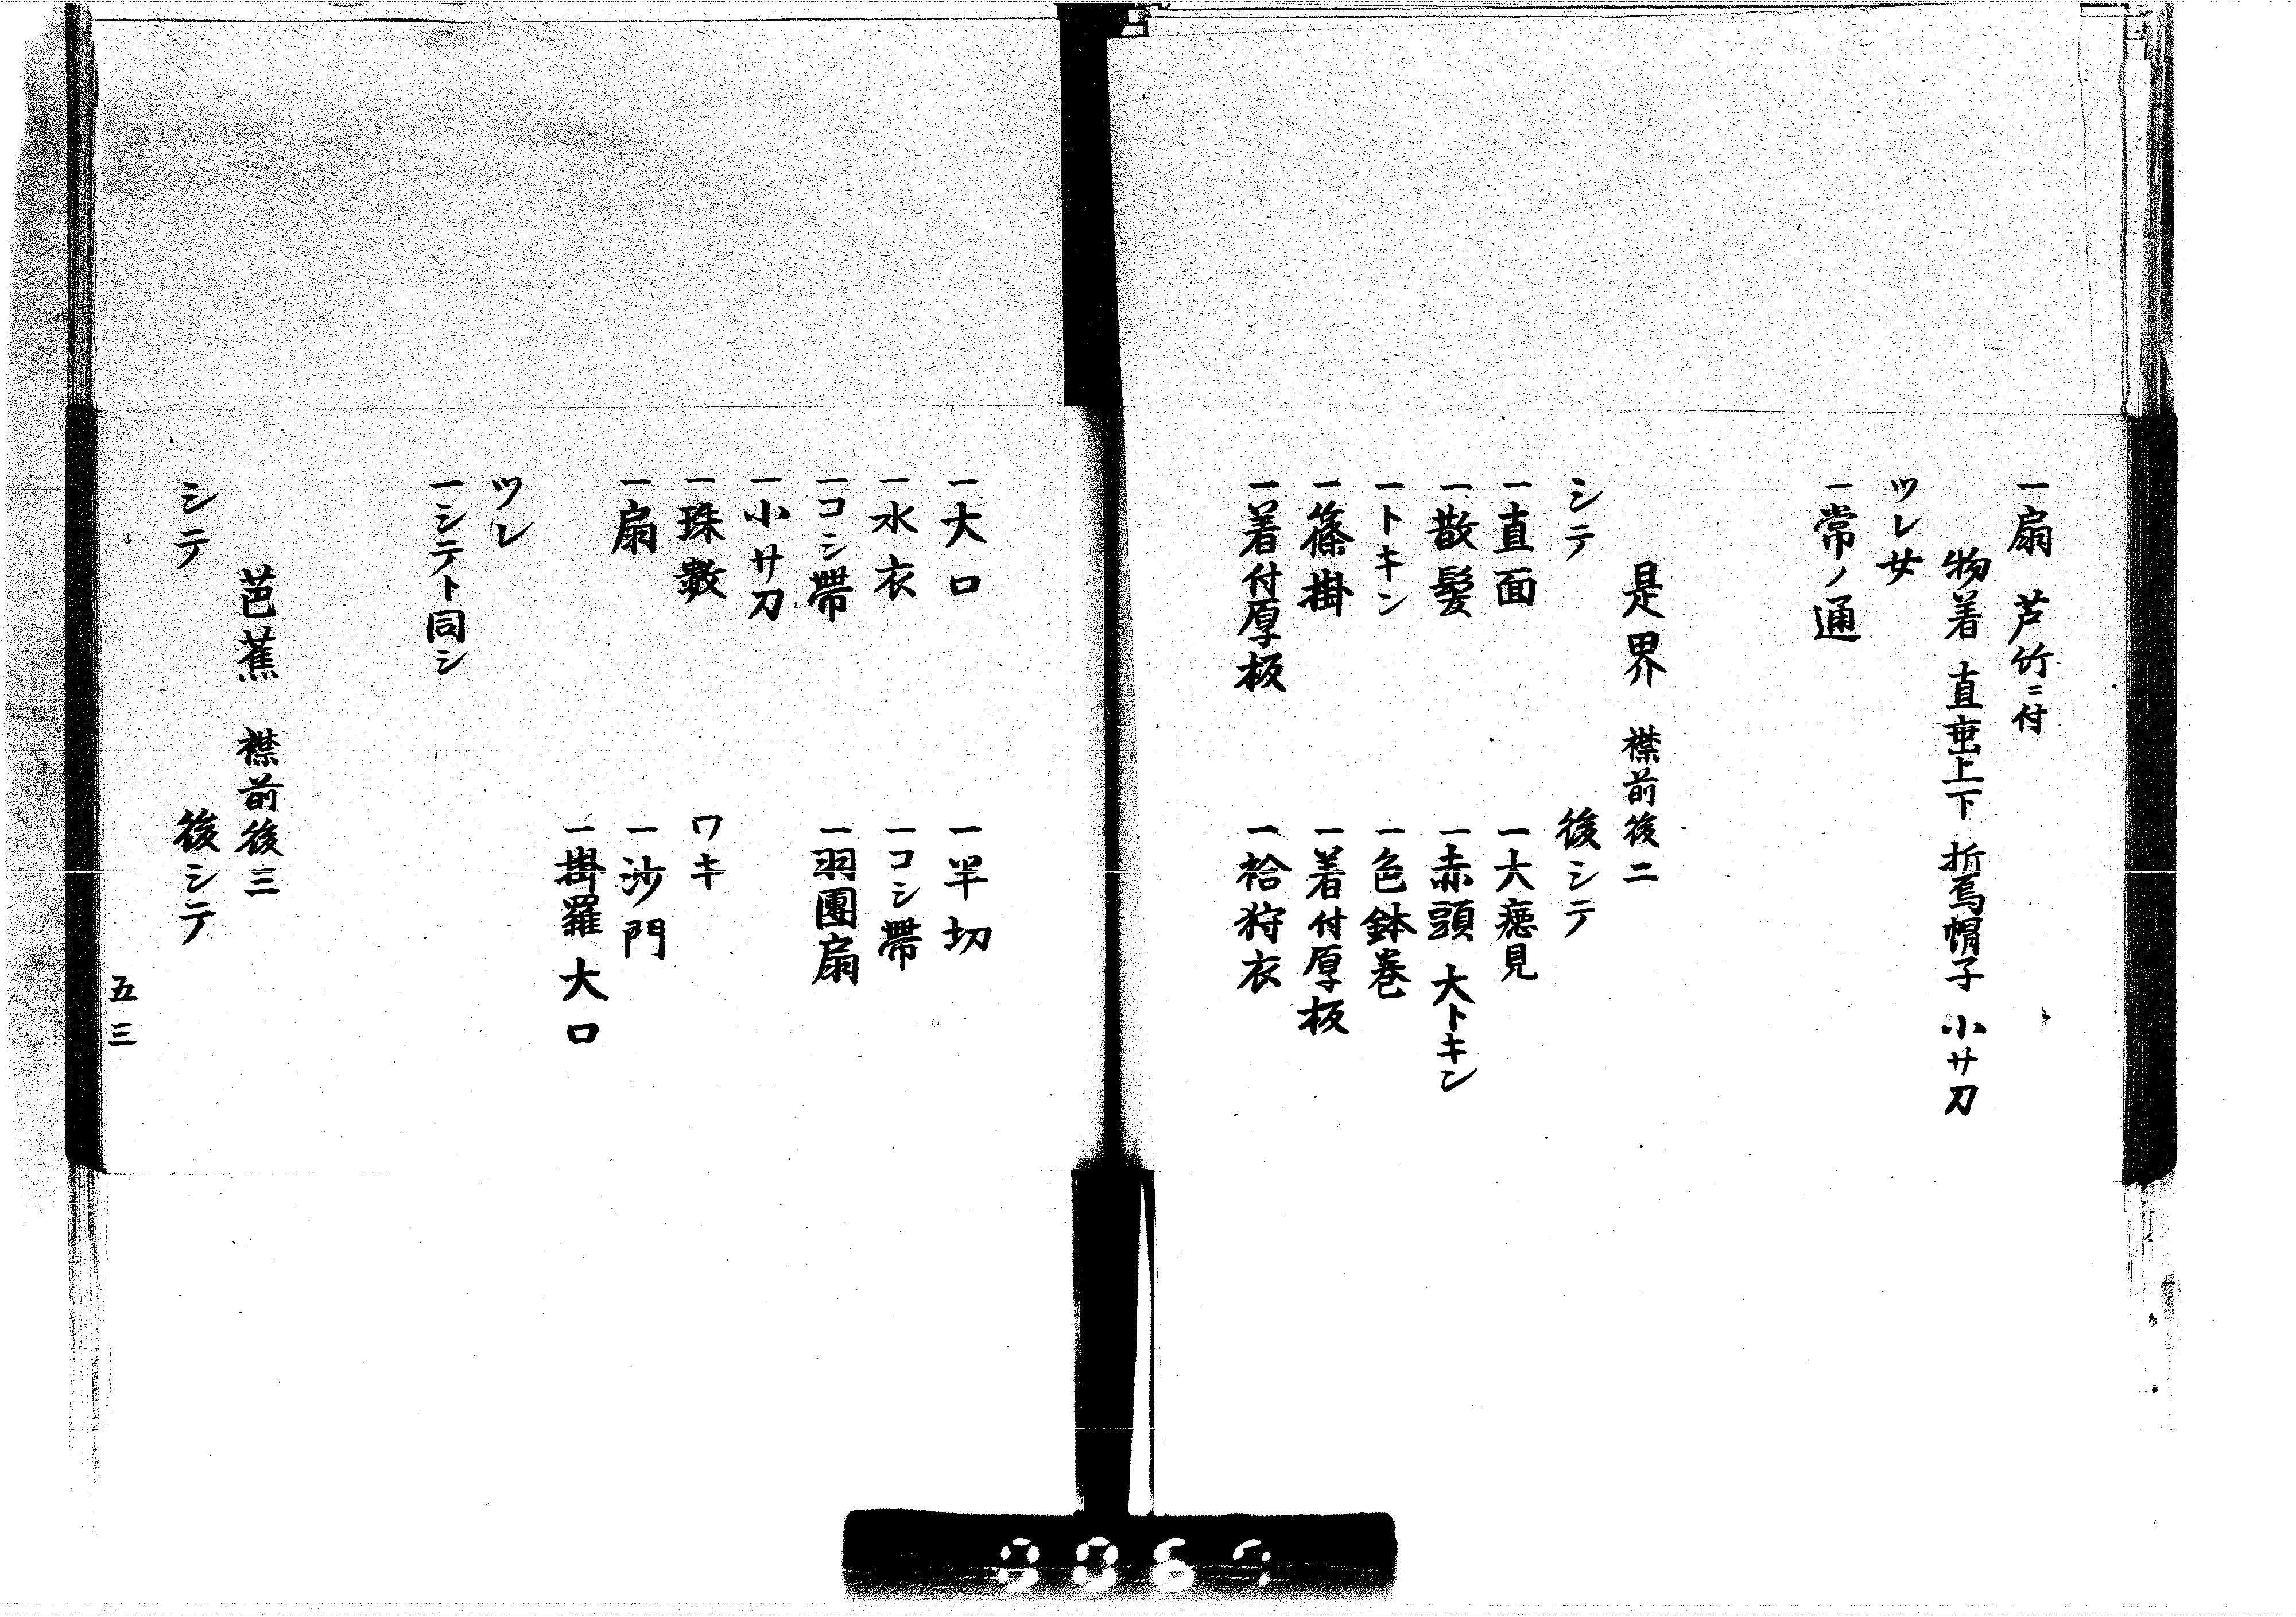 一扇 芦竹ニ付
物着 直垂上下 折烏帽子 小サ刀
ツレ女
一常ノ通
是界 襟前後二
シテ 後シテ
一直面 一大癋見
一散髪 一赤頭 大トキン
一トキン 一色鉢巻
一篠掛 一着付厚板
一着付厚板 一袷狩衣
一大口 一半切
一水衣 一コシ帯
一コシ帯 一羽團扇
一小サ刀
一珠數 ワキ
一扇 一沙門
一掛羅 大口
ツレ
一シテト同シ
芭蕉 襟前後三
シテ 後シテ
五三